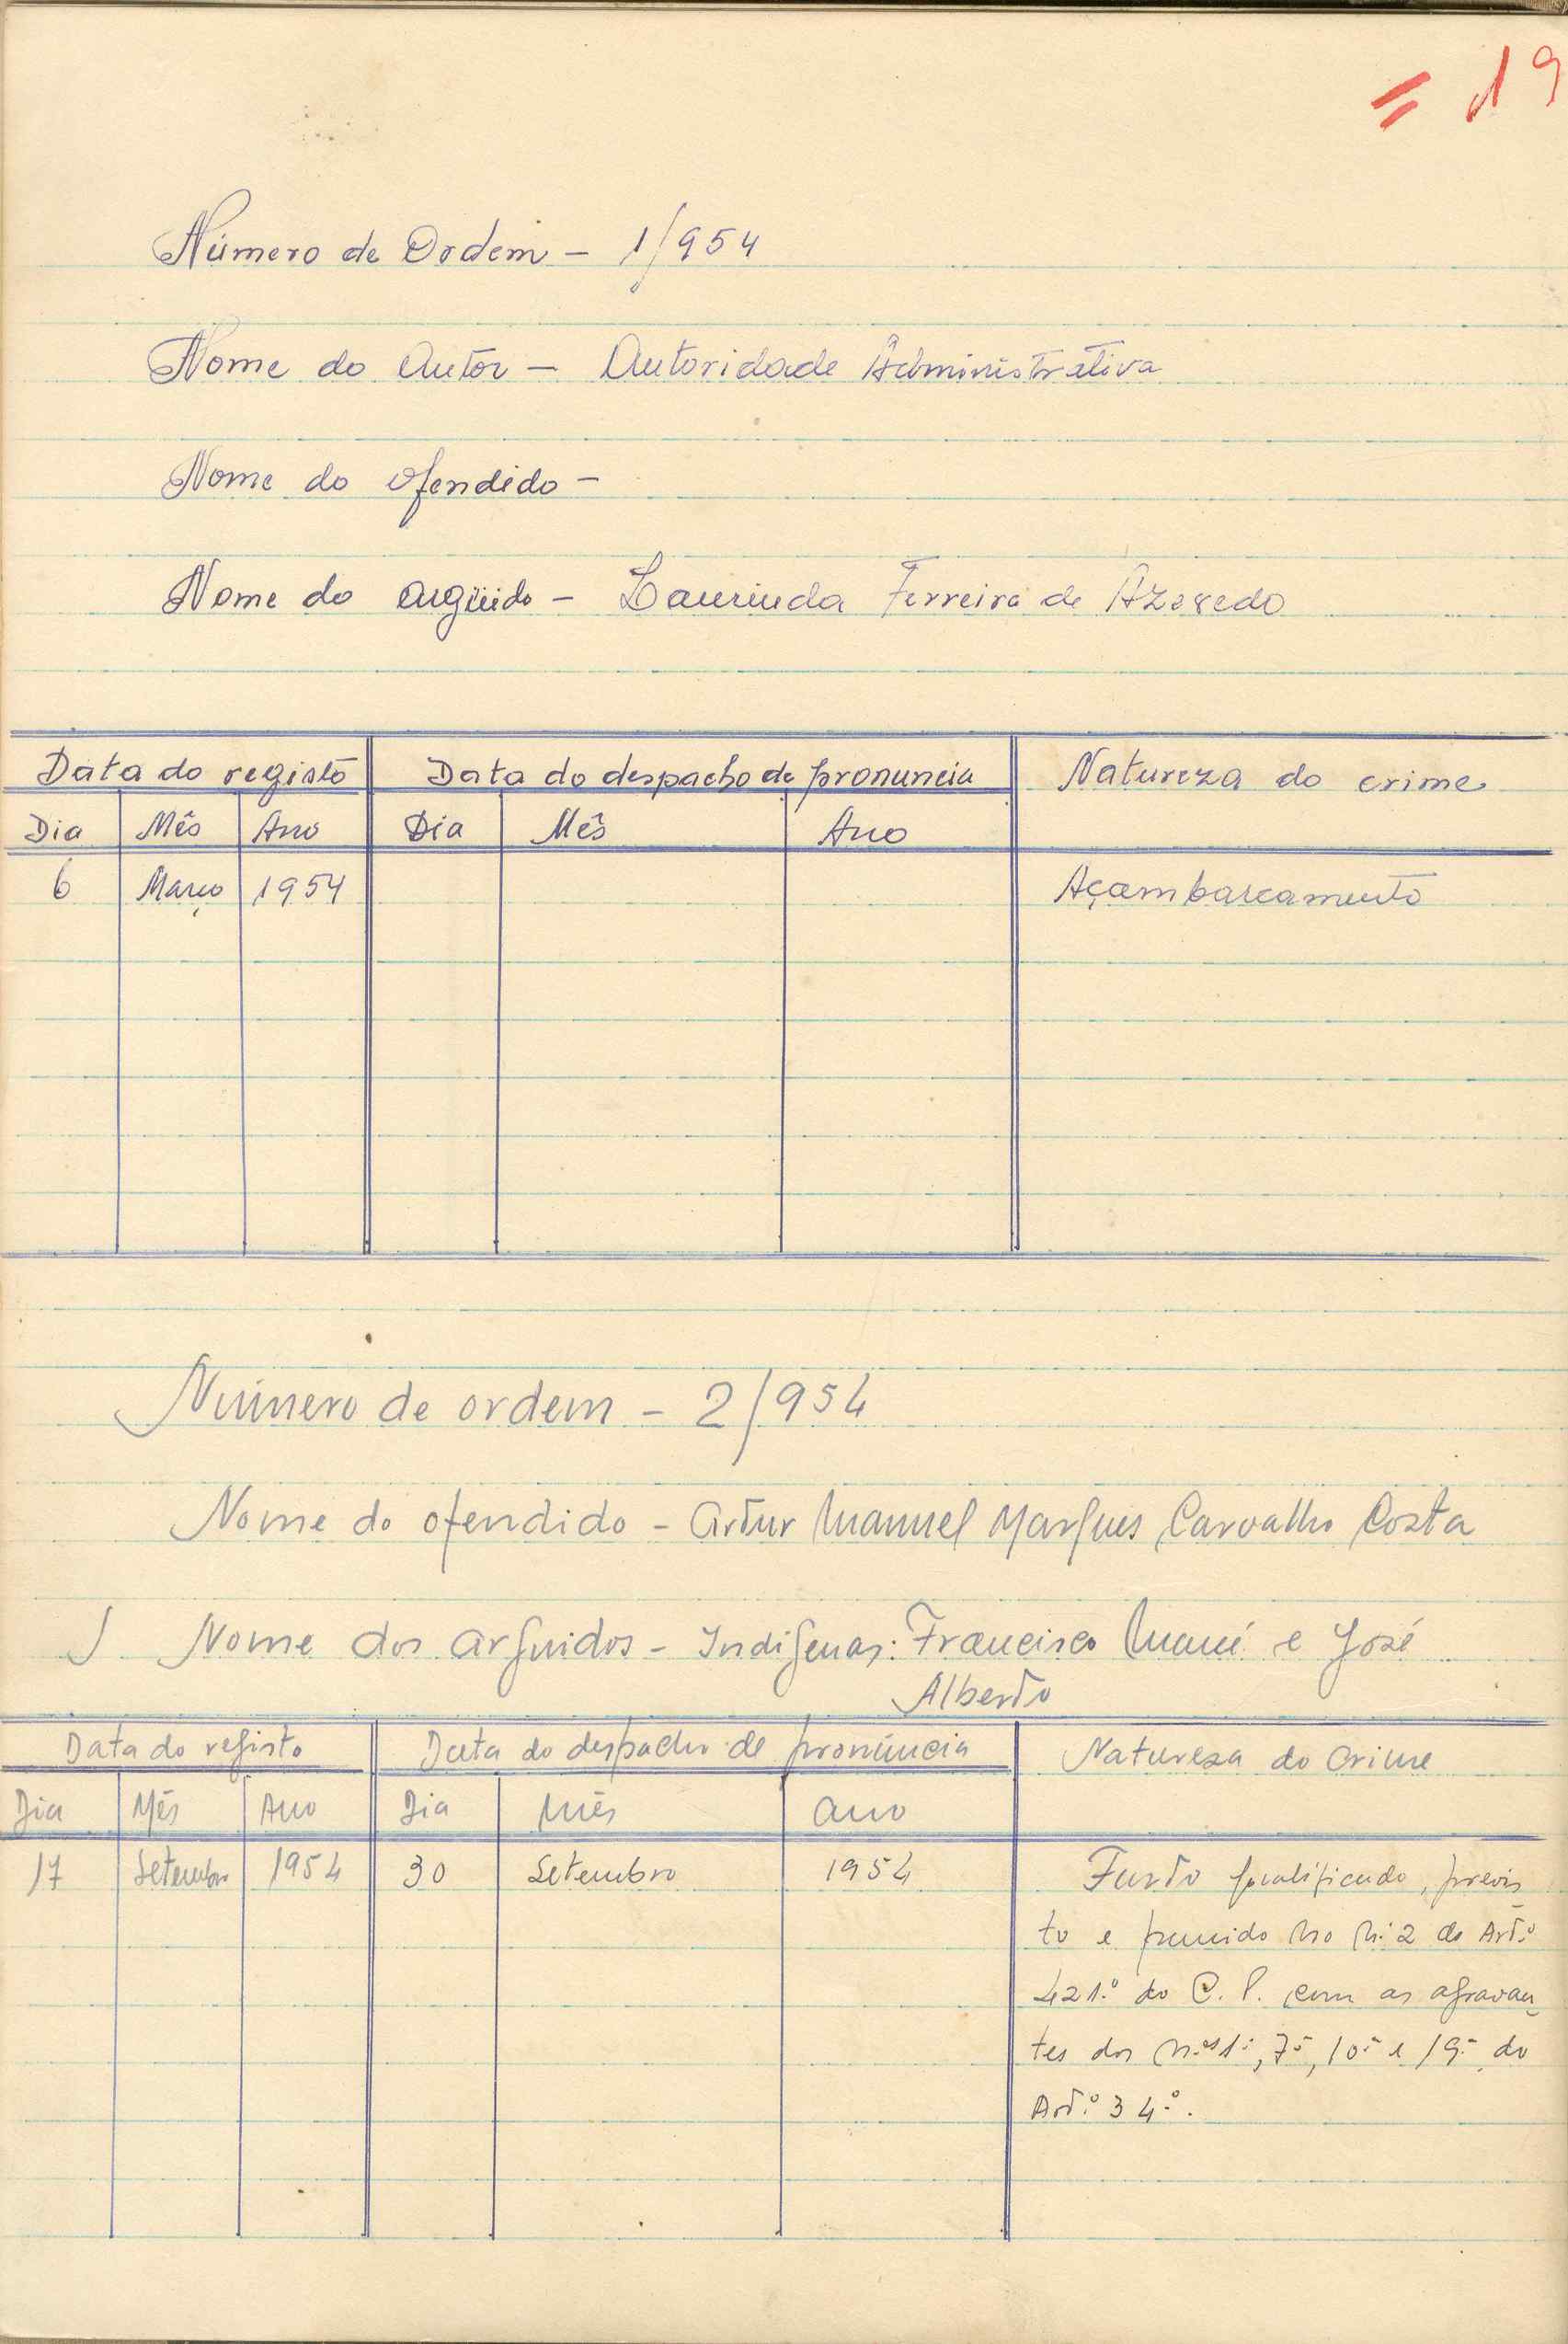 = 19
Número de Ordem - 1/954
Nome do Autor - Autoridade Administrativa
Nome do ofendido -
Nome do argüido - Laurinda Ferreira de Azevedo
Data do registo Data do despacho de pronuncia Natureza do crime
Dia Mês Ano Dia Mês Ano
6 Março 1954 Açambarcamento
Número de ordem - 2/954
Nome do ofendido - Artur Manuel Marques Carvalho Costa
Nome dos arguidos - Indigenas: Francisco e José
Alberto
Data do registo Data do despacho de pronúncia Natureza do Crime
Dia Mês Ano Dia Mês Ano
17 Setembro 1954 30 Setembro 1954 Furto qualificado, previs-
to e punido no n.º 2 do Art.º
421.º do C. P. com as agravan-
tes dos n.os 1.º, 7.º, 10.º e 19.º do
Art.º 34.º.